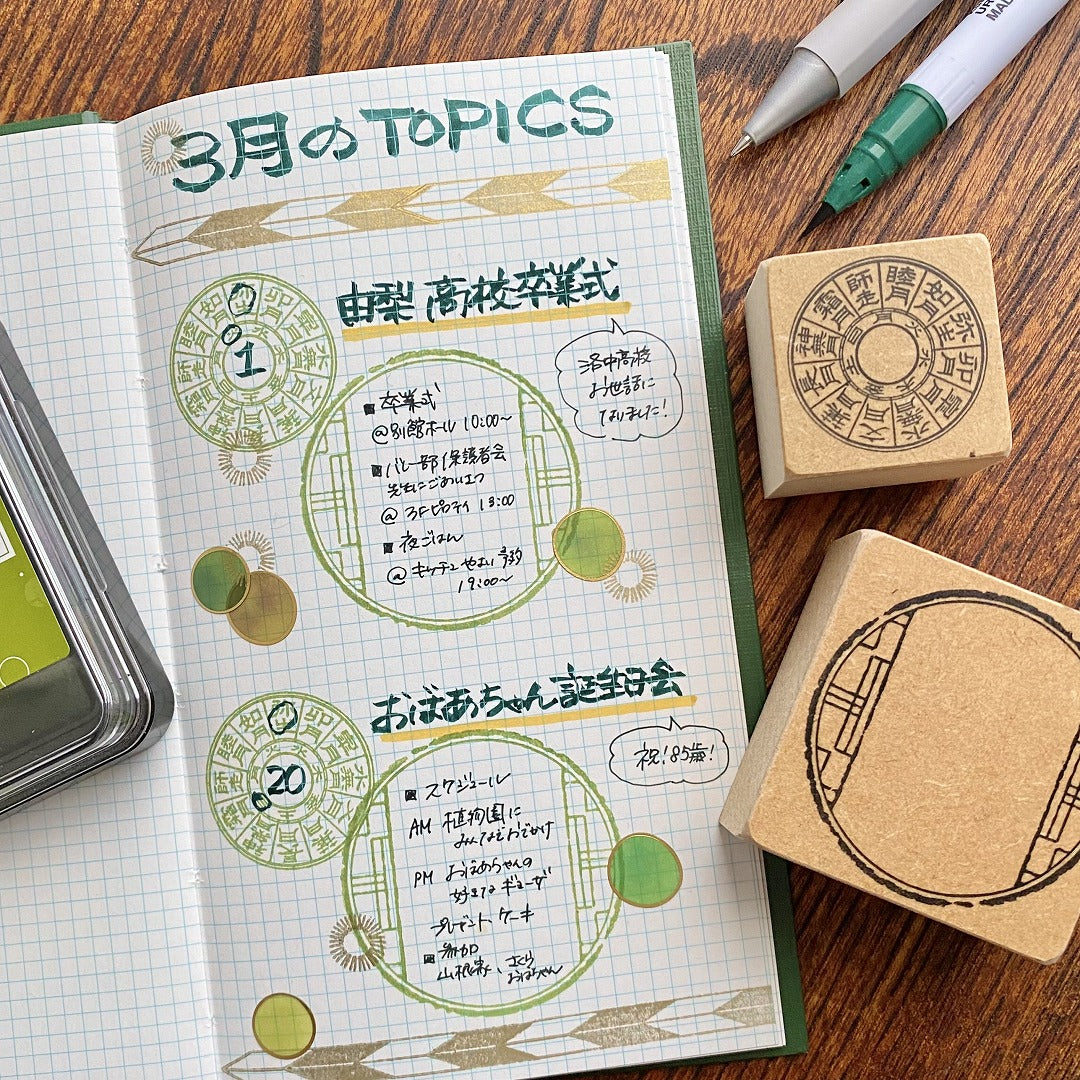 3月のTOPICS
1
由梨 高校卒業式
洛中高校
お世話に
なりました!
■ 卒業式
@別館ホール 10:00〜
■バレー部 保護者会
先生にごあいさつ
@ 3F ピロティ 13:00
■ 夜ごはん
@ キッチン やまい
19:00〜
おばあちゃん誕生日会
祝!85歳!
20
■ スケジュール
AM 植物園に
みんなでおでかけ
PM おばあちゃんの
好きなギョーザ
プレゼント、ケーキ
■ 参加
山根家、さくら
おばちゃん
師走
睦月
如月
弥生
卯月
皐月
水無月
文月
葉月
長月
神無月
霜月
火
水
木
金
土
日
月